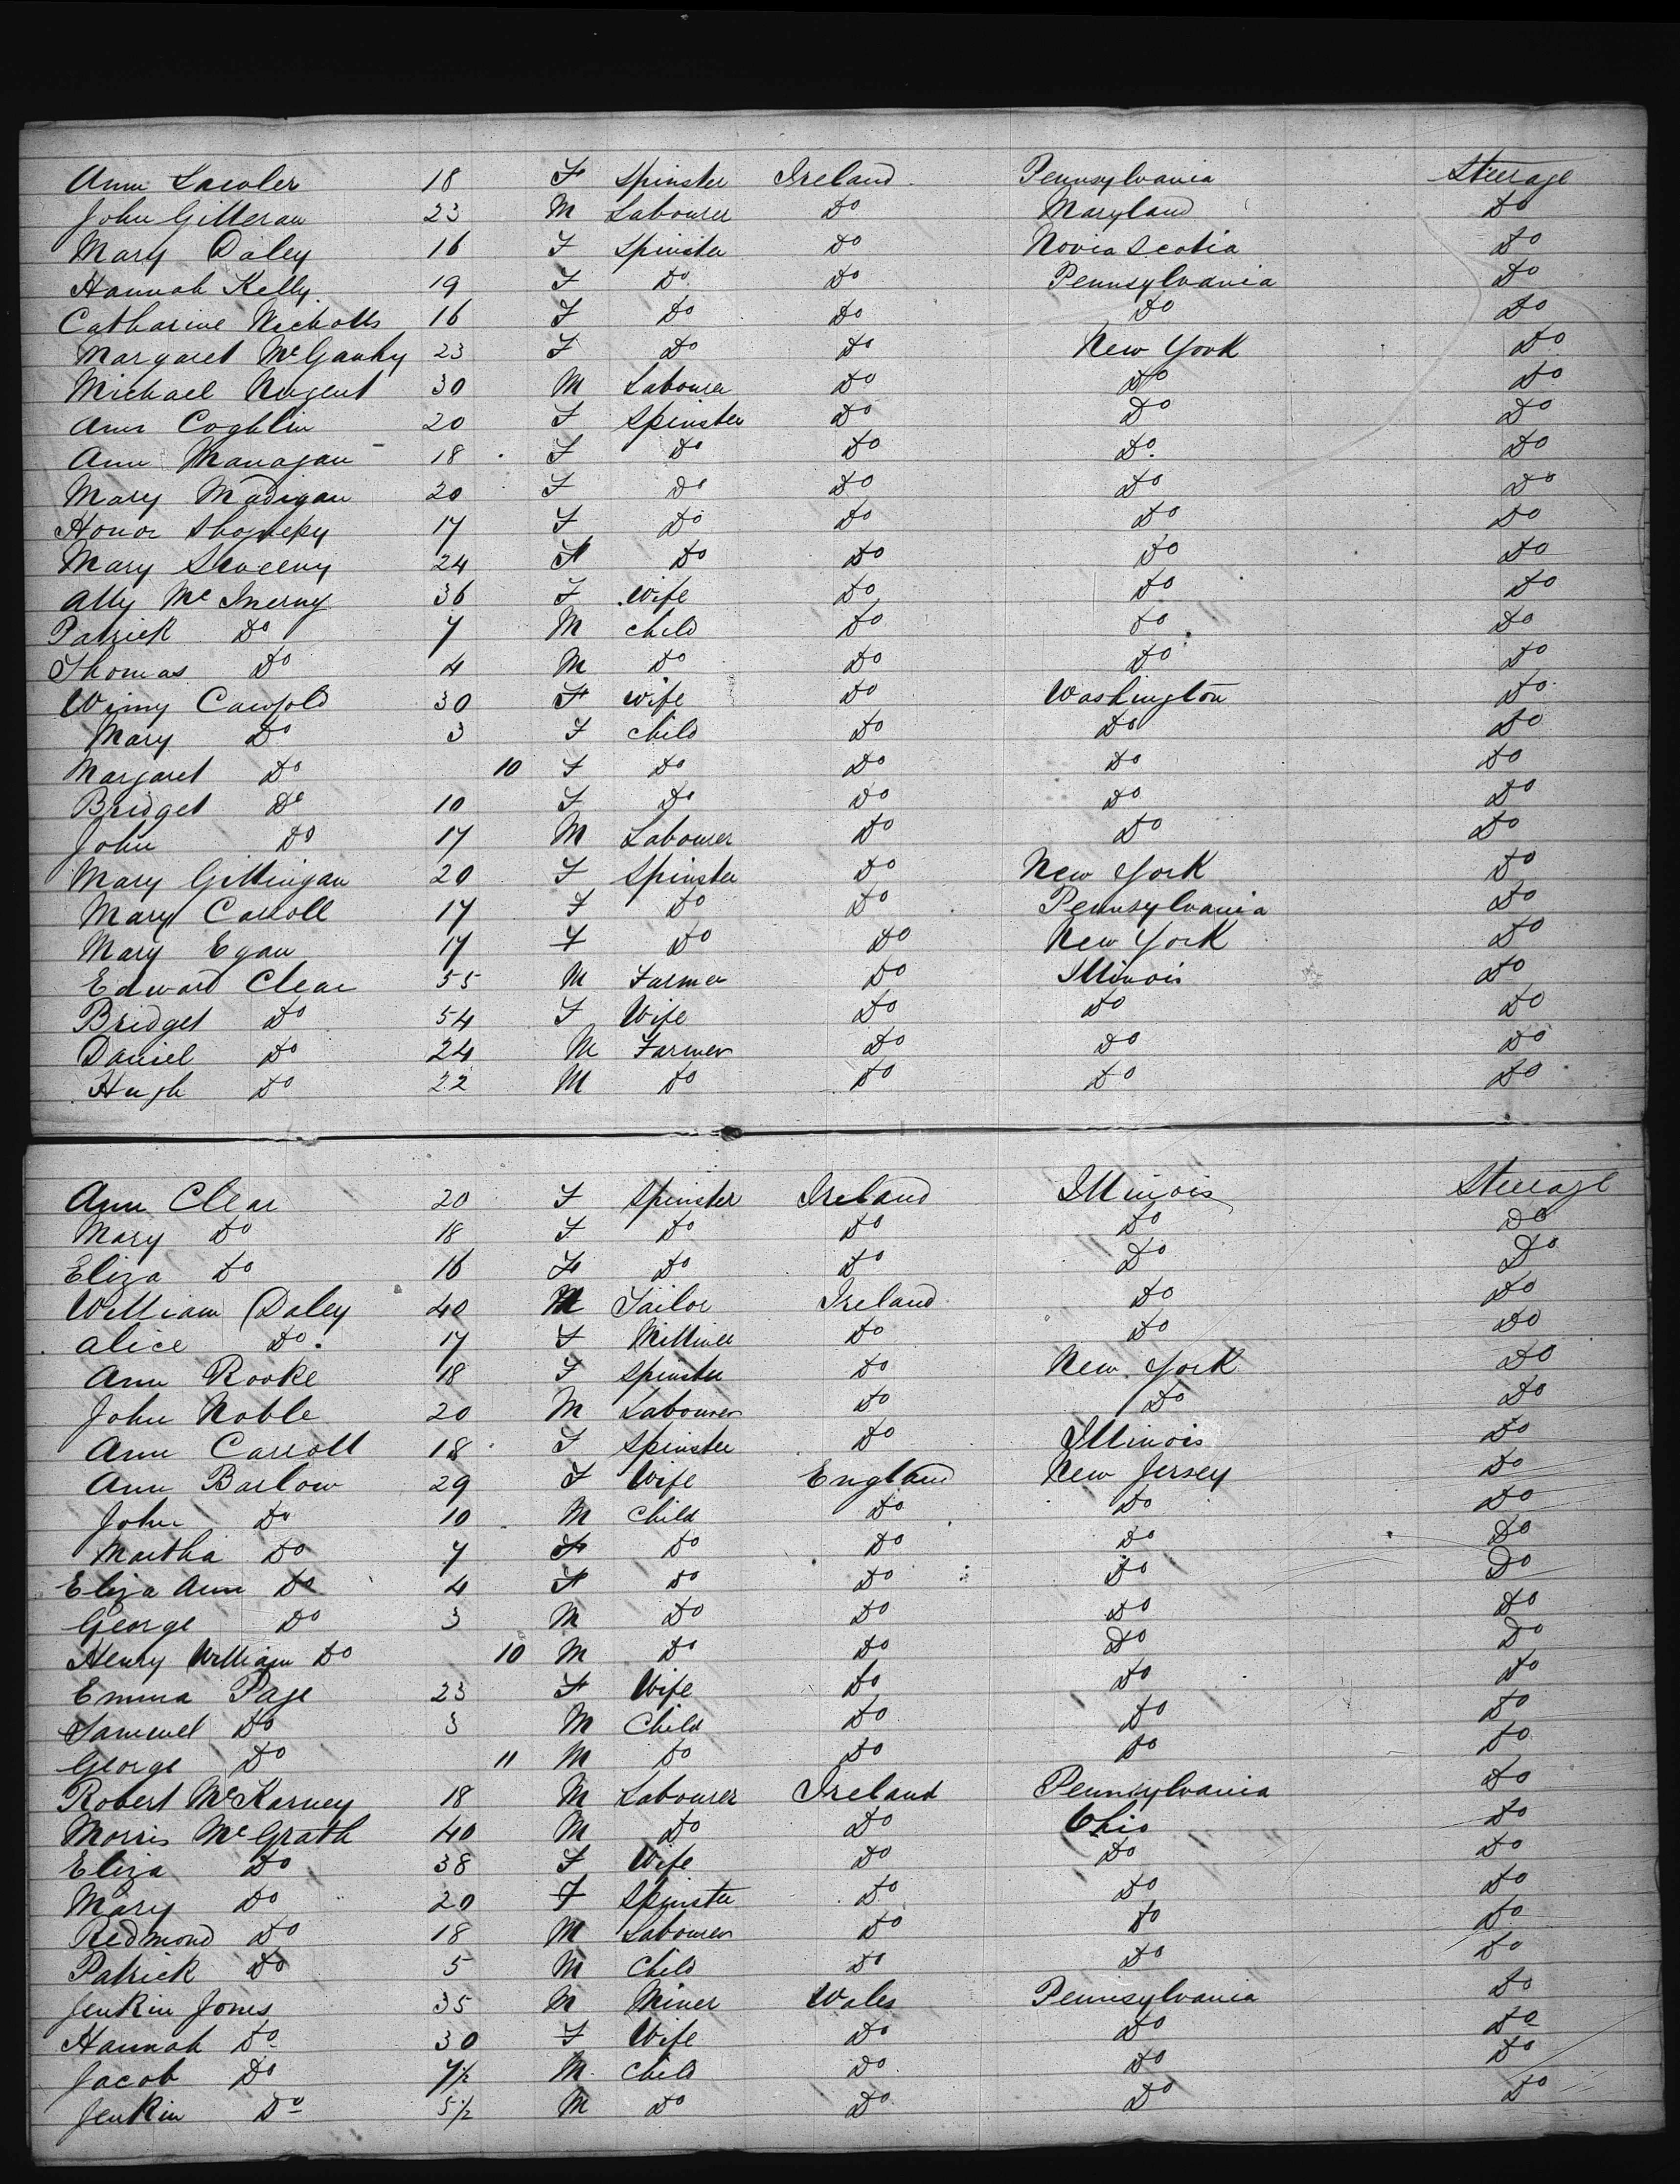 Ann Lawler 18 F Spinster Ireland Pennsylvania Steerage
John Gilleran 23 M Labourer Do Maryland Do
Mary Daley 16 F Spinster Do Novia Scotia Do
Hannah Kelly 19 F Do Do Pennsylvania Do
Catharine Nicholls 16 F Do Do Do Do
Margaret McGauhy 23 F Do Do New York Do
Michael Nugent 30 M Labourer Do Do Do
Ann Coghlin 20 F Spinster Do Do Do
Ann Managan 18 F Do Do Do Do
Mary Madigan 20 F Do Do Do Do
Honor 17 F Do Do Do Do
Mary Sweeny 24 F Do Do Do Do
Ally McInerny 36 F Wife Do Do Do
Patrick Do 7 M Child Do Do Do
Thomas Do 4 M Do Do Do Do
Winny 30 F Wife Do Washington Do
Mary Do 3 F Child Do Do Do
Margaret Do 10 F Do Do Do Do
Bridget Do 10 F Do Do Do Do
John Do 17 M Labourer Do Do Do
Mary Gilligan 20 F Spinster Do New York Do
Mary Carroll 17 F Do Do Pennsylvania Do
Mary Egan 17 F Do Do New York Do
Edward Clear 55 M Farmer Do Illinois Do
Bridget Do 54 F Wife Do Do Do
Daniel Do 24 M Farmer Do Do Do
Hugh Do 22 M Do Do Do Do
Ann Clear 20 F Spinster Ireland Illinois Steerage
Mary Do 18 F Do Do Do Do
Eliza Do 16 F Do Do Do Do
William Daley 40 M Tailor Ireland Do Do
Alice Do 17 F Milliner Do Do Do
Ann Rooke 18 F Spinster Do New York Do
John Noble 20 M Labourer Do Do Do
Ann Carroll 18 F Spinster Do Illinois Do
Ann Barlow 29 F Wife England New Jersey Do
John Do 10 M Child Do Do Do
Martha Do 7 F Do Do Do Do
Eliza Ann Do 4 F Do Do Do Do
George Do 3 M Do Do Do Do
Henry William Do 10 M Do Do Do Do
Emma Page 23 F Wife Do Do Do
Samuel Do 3 M Child Do Do Do
George Do 11 M Do Do Do Do
Robert McKarney 18 M Labourer Ireland Pennsylvania Do
Morris McGrath 40 M Do Do Ohio Do
Eliza Do 38 F Wife Do Do Do
Mary Do 20 F Spinster Do Do Do
Redmond Do 18 M Labourer Do Do Do
Patrick Do 5 M Child Do Do Do
Jenkin Jones 35 M Miner Wales Pennsylvania Do
Hannah Do 30 F Wife Do Do Do
Jacob Do 7½ M Child Do Do Do
Jenkin Do 5½ M Do Do Do Do